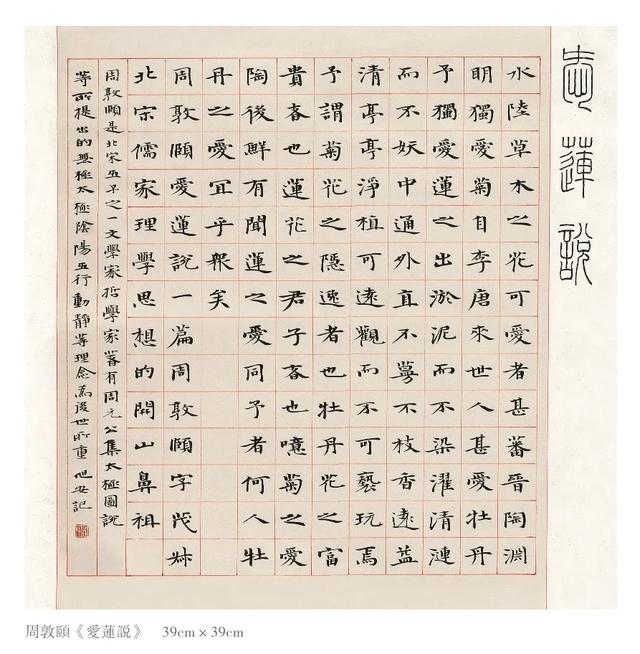 愛蓮說
水陸草木之花可愛者甚蕃晉陶淵
明獨愛菊自李唐來世人甚愛牡丹
予獨愛蓮之出淤泥而不染濯清漣
而不妖中通外直不蔓不枝香遠益
清亭亭淨植可遠觀而不可褻玩焉
予謂菊花之隱逸者也牡丹花之富
貴者也蓮花之君子者也噫菊之愛
陶後鮮有聞蓮之愛同予者何人牡
丹之愛宜乎眾矣
周敦頤愛蓮說一篇周敦頤字茂叔
北宋儒家理學思想的開山鼻祖
周敦頤是北宋五子之一文學家哲學家著有周元公集太極圖說
等所提出的無極太極陰陽五行動靜等理念為後世所重
周敦頤《愛蓮說》 39cm×39cm